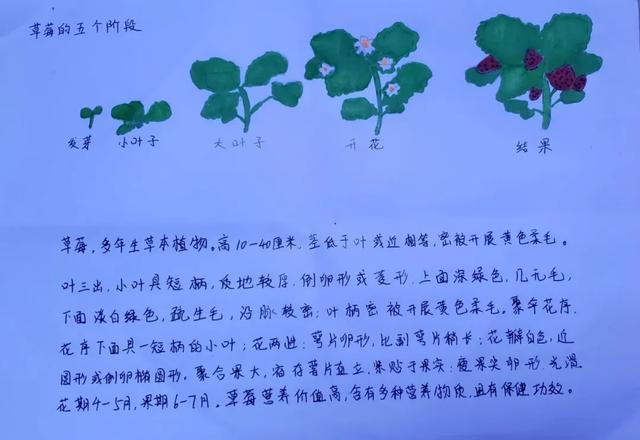 草莓的五个阶段
发芽 小叶子 大叶子 开花 结果
草莓，多年生草本植物。高10-40厘米，茎低于叶或近相等，密被开展黄色柔毛。
叶三出，小叶具短柄，质地较厚，倒卵形或菱形，上面深绿色，几无毛，
下面淡白绿色，疏生毛，沿脉较密；叶柄密被开展黄色柔毛。聚伞花序，
花序下面具一短柄的小叶；花两性；萼片卵形，比副萼片稍长；花瓣白色，近
圆形或倒卵椭圆形。聚合果大，宿存萼片直立，紧贴于果实；瘦果尖卵形，光滑。
花期4-5月，果期6-7月。草莓营养价值高，含有多种营养物质，且有保健功效。